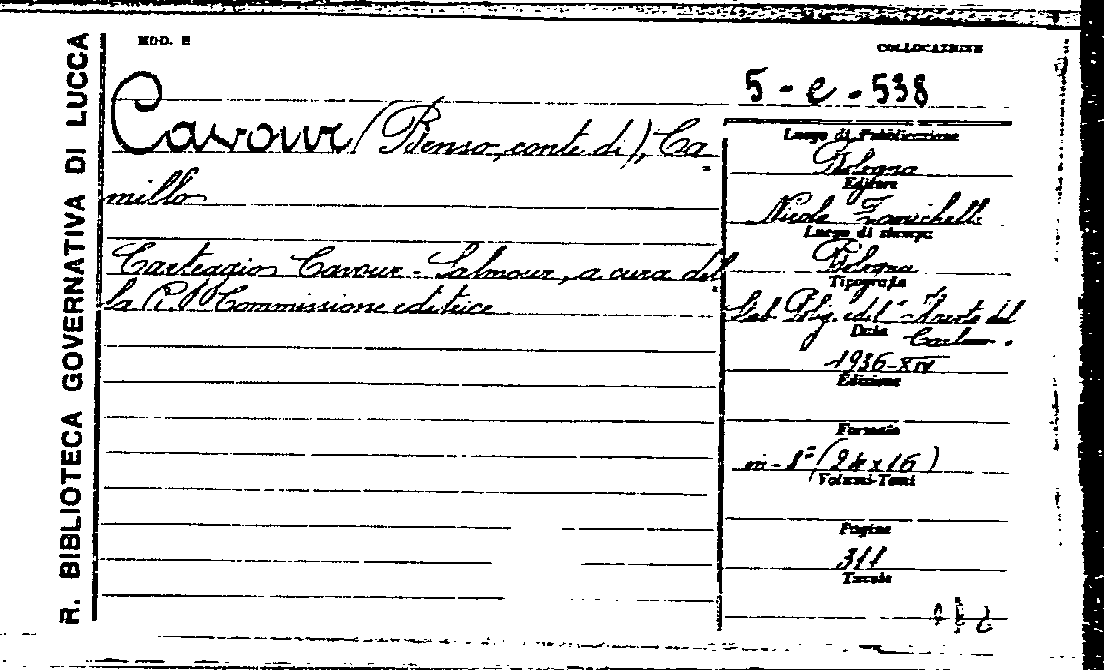 R. BIBLIOTECA GOVERNATIVA DI LUCCA
MOD. E
COLLOCAZIONE
5-e-538
Cavour (Benso, conte di), Ca-
millo
Carteggio Cavour-Salmour, a cura del-
la R. Commissione editrice
Luogo di Pubblicazione
Bologna
Editore
Nicola Zanichelli
Luogo di stampa
Bologna
Tipografia
Stab. Polig. del
Data
1936-XIV
Edizione
Formato
in-8° (24x16)
Volumi-Tomi
Pagine
311
Tavole